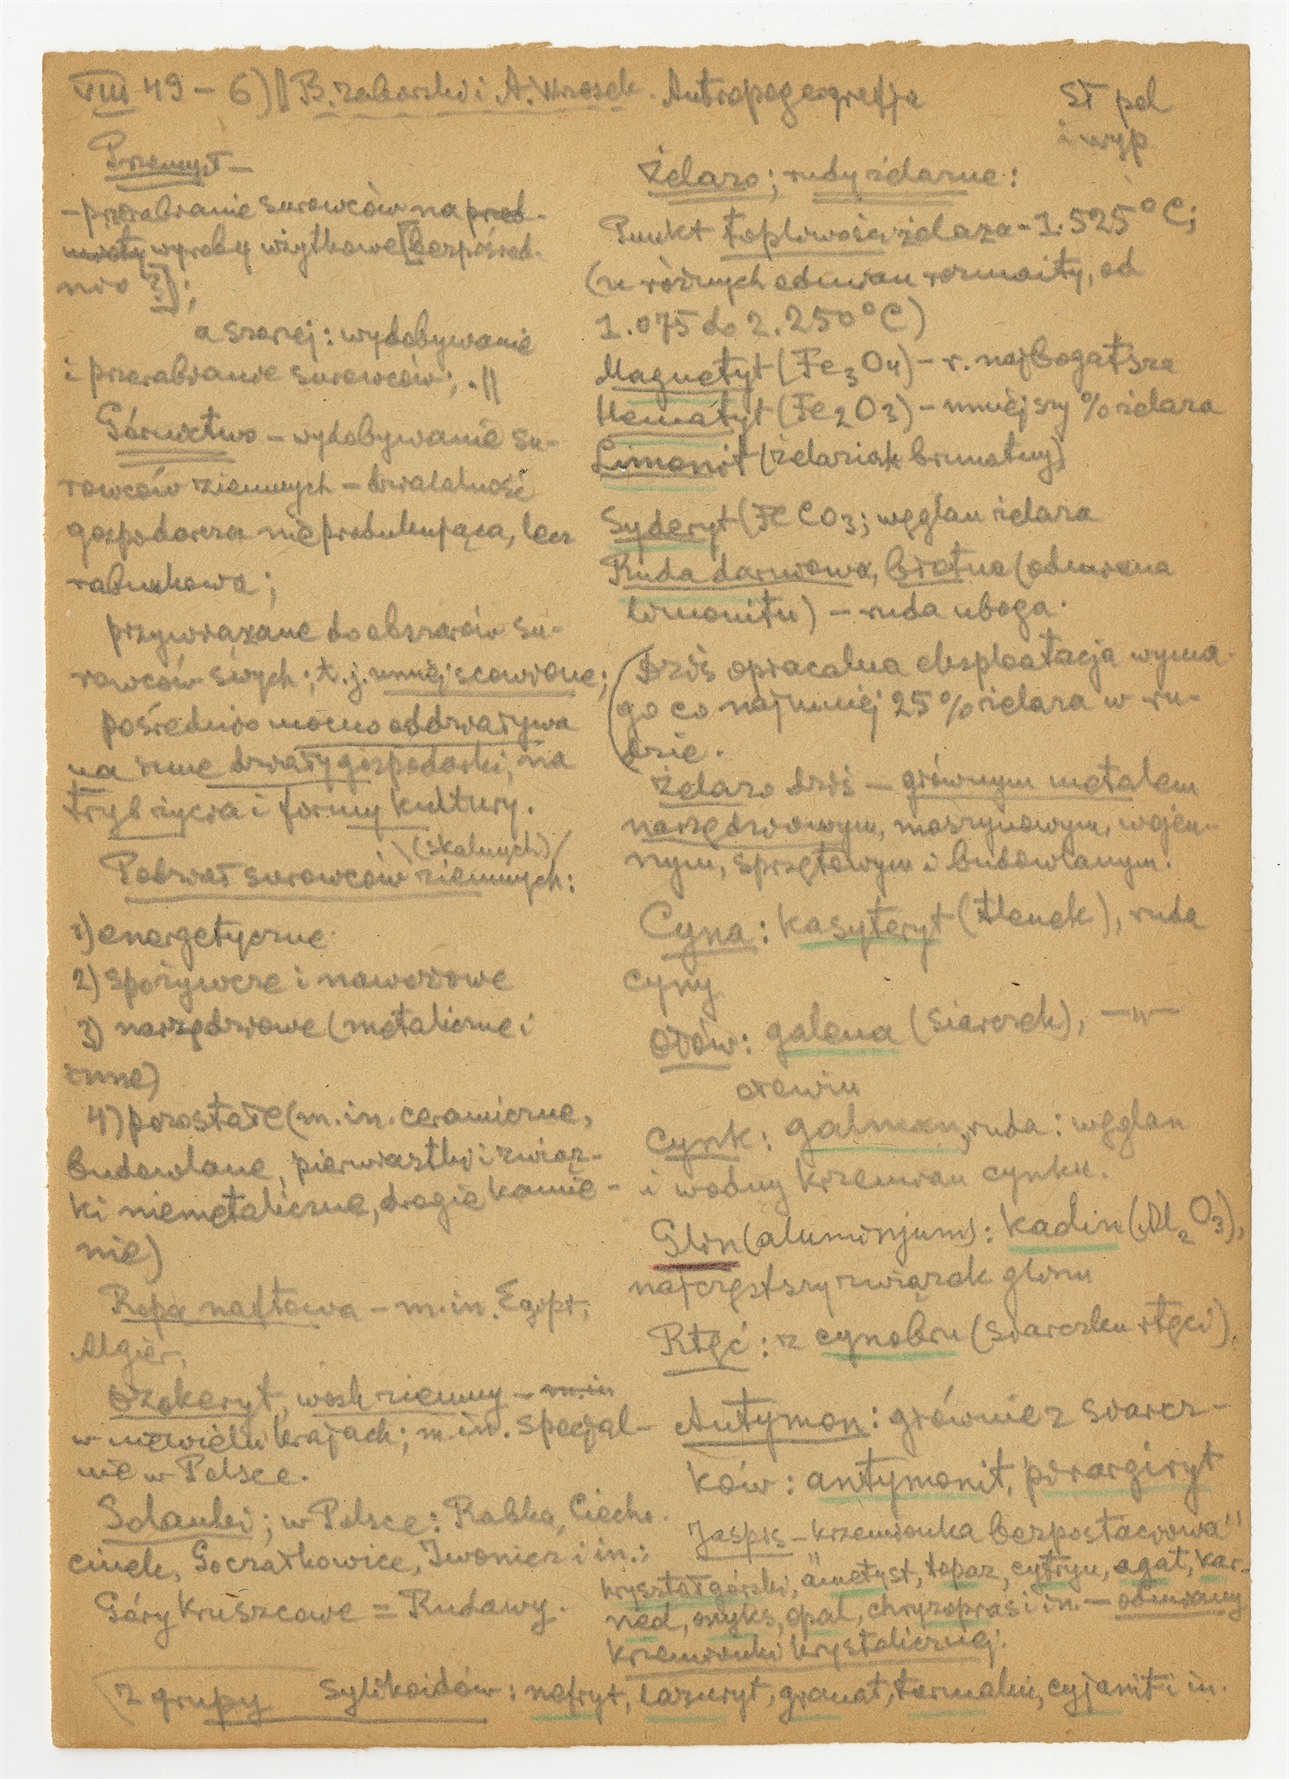 VIII 49 – 6) || B. Zaborski i A. Wrosek. Antropogeografja
SŁ pol
i wyp
Przemysł –
– przerabianie surowców na przed-
mioty wyroby użytkowe [bezpośred-
nio ?];
a szerzej: wydobywanie
i przerabianie surowców; . ||
Górnictwo – wydobywanie su-
rowców ziemnych – działalność
gospodarcza nieprodukująca, lecz
rabunkowa;
przywiązane do obszarów su-
rowców swych; t. j. umiejscowione;
pośrednio mocno oddziaływa
na inne działy gospodarki, na
tryb życia i formy kultury.
(skalnych)
Podział surowców ziemnych:
1) energetyczne
2) spożywcze i nawozowe
3) narzędziowe (metaliczne i
inne)
4) pozostałe (m. in. ceramiczne,
budowlane, pierwiastki i związ-
ki niemetaliczne, drogie kamie-
nie)
Ropa naftowa – m. in. Egipt,
Algier,
Ozokeryt, wosk ziemny – m. in
w niewielu krajach; m. in. specjal-
nie w Polsce.
Solanki; w Polsce: Rabka, Ciecho-
cinek, Goczałkowice, Iwonicz i in.;
Góry Kruszcowe = Rudawy.
Żelazo; rudy żelazne:
Punkt topliwości żelaza – 1.525°C;
(u różnych odmian rozmaity, od
1.075 do 2.250°C)
Magnetyt (Fe3O4) – r. najbogatsza
Hematyt (Fe2O3) – mniejszy % żelaza
Limonit (żelaziak brunatny)
Syderyt (FeCO3; węglan żelaza
Ruda darniowa, błotna (odmiana
limonitu) – ruda uboga.
(Dziś opłacalna eksploatacja wyma-
ga co najmniej 25% żelaza w ru-
dzie.
Żelazo dziś – głównym metalem
narzędziowym, maszynowym, wojen-
nym, sprzętowym i budowlanym.
Cyna: kasyteryt (tlenek), ruda
cyny
Ołów: galena (siarczek), —"—
ołowiu
Cynk: galman, ruda: węglan
i wodny krzemian cynku.
Glin (aluminjum): kaolin (Al2O3),
najczęstszy związek glinu
Rtęć: z cynobru (siarczku rtęci)
Antymon: głównie z siarcz-
ków: antymonit, pirargiryt
Jaspis – krzemionka bezpostaciowa"
kryształ górski, ametyst, topaz, cytryn, agat, kar-
neol, onyks, opal, chryzopras i in. – odmiany
krzemionki krystalicznej.
z grupy sylikoidów: nefryt, lazuryt, granat, turmalin, cyjanit i in.